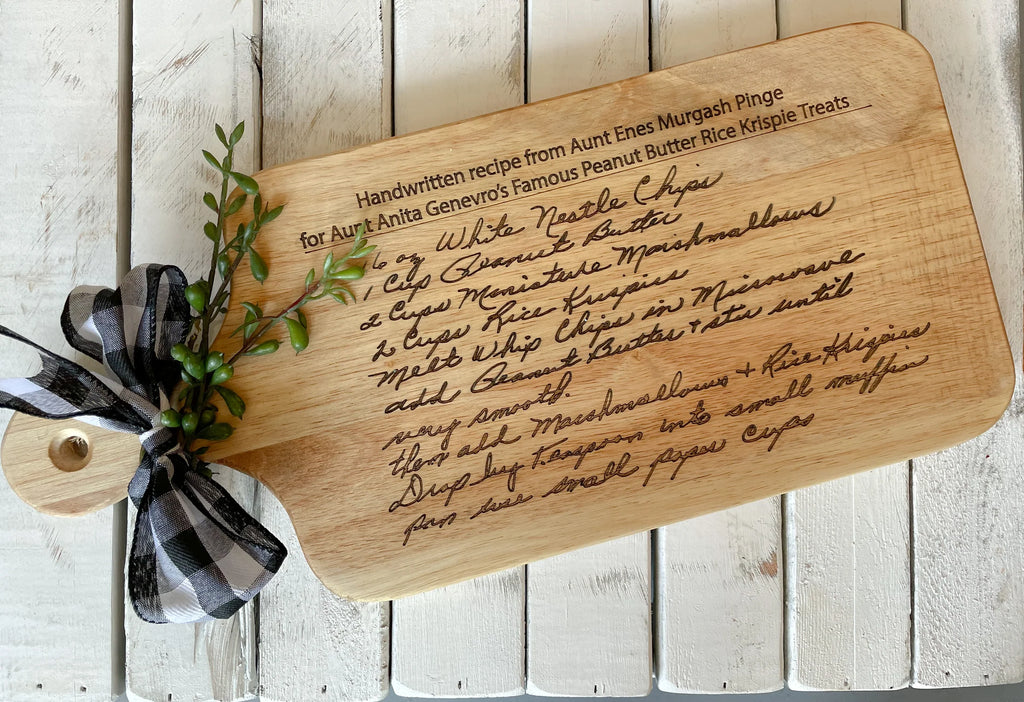 Handwritten recipe from Aunt Enes Murgash Pinge
for Aunt Anita Genevro's Famous Peanut Butter Rice Krispie Treats
6 oz White Nestle Chips
1 Cup Peanut Butter
2 Cups Miniature Marshmallows
2 Cups Rice Krispies
Melt Whip Chips in Microwave
add Peanut Butter + stir until
very smooth.
then add Marshmallows + Rice Krispies
Drop by Teaspoon into small muffin
pan use small paper cups